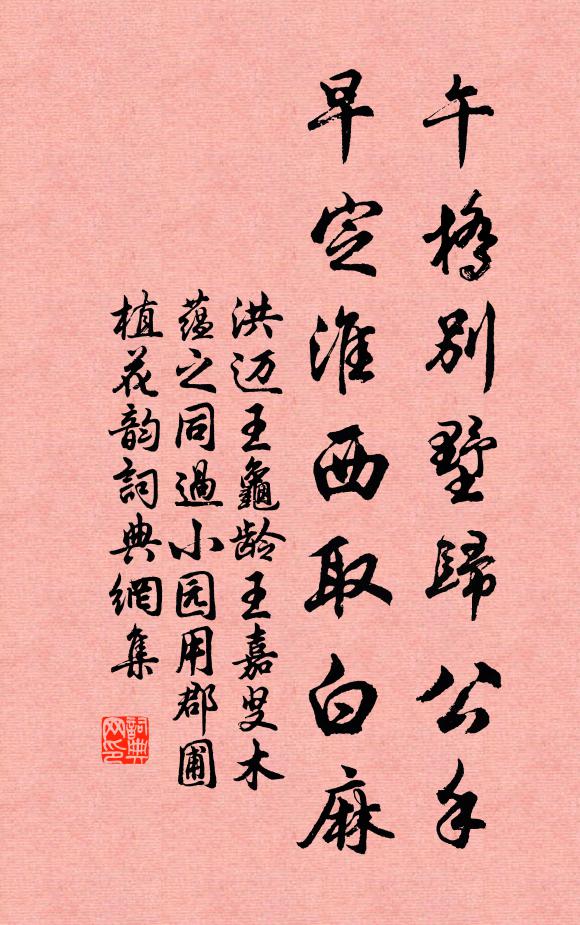 午橋別墅歸公手
早定淮西取白麻
洪迈王龜龄王嘉叟木
蕴之同過小园用郡圃
植花韵詞典網集
詞典網印